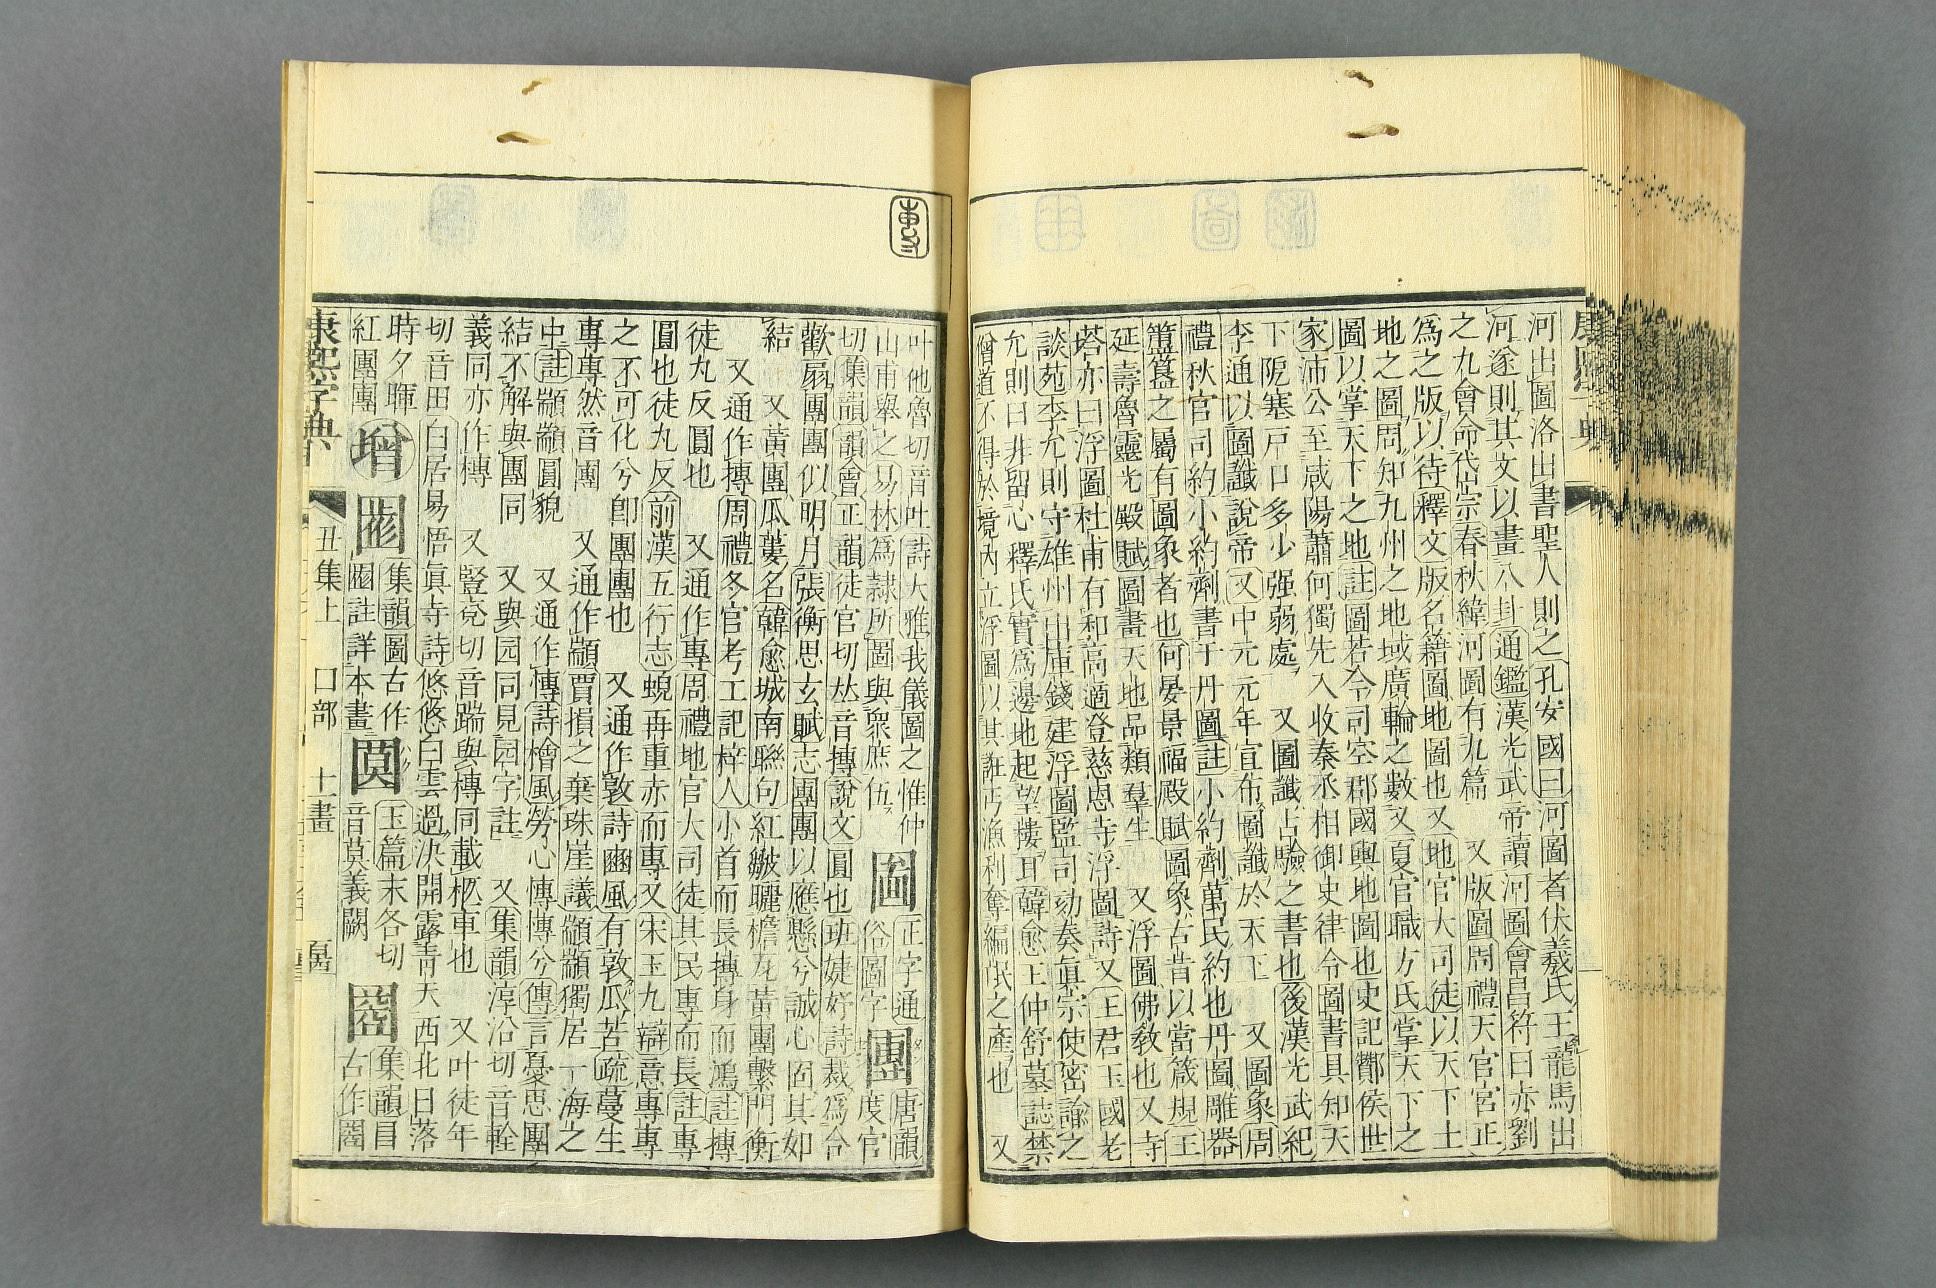 河出圖洛出書聖人則之孔安國曰河圖者伏羲氏王龍馬出
河遂則其文以畫八卦通鑑漢光武帝讀河圖會昌符曰赤劉
之九會命岱宗春秋緯河圖有九篇 又版圖周禮天官宮正
爲之版以待釋文版名籍圖地圖也又地官大司徒以天下土
地之圖周知九州之地域廣輪之數又夏官職方氏掌天下之
圖以掌天下之地註圖若今司空郡國輿地圖也史記酇侯世
家沛公至咸陽蕭何獨先入收秦丞相御史律令圖書具知天
下阨塞戸口多少强弱處 又圖讖占驗之書也後漢光武紀
李通以圖讖說帝又中元元年宣布圖讖於天下 又圖象周
禮秋官司約小約劑書于丹圖註小約劑萬民約也丹圖雕器
簠簋之屬有圖象者也何晏景福殿賦圖象古昔以當箴規王
延壽魯靈光殿賦圖畫天地品類羣生 又浮圖佛敎也又寺
塔亦曰浮圖杜甫有和高適登慈恩寺浮圖詩又王君玉國老
談苑李允則守雄州出庫錢建浮圖監司劾奏眞宗使密諭之
允則曰非留心釋氏實爲邊地起望樓耳韓愈王仲舒墓誌禁
僧道不得於境內立浮圖以其誑丐漁利奪編氓之產也 又
叶他魯切音吐詩大雅我儀圖之惟仲
山甫舉之易林爲隸所圖與衆庶伍
圗正字通
俗圖字
團唐韻
度官
切集韻韻會正韻徒官切𠀤音摶說文圓也班婕妤詩裁爲合
歡扇團團似明月張衡思玄賦志團團以應懸兮誠心固其如
結 又黃團瓜蔞名韓愈城南聯句紅皺曬檐瓦黃團繫門衡
又通作摶周禮冬官考工記梓人小首而長摶身而鴻註摶
徒丸反圜也 又通作專周禮地官大司徒其民專而長註專
圜也徒丸反前漢五行志蜺再重赤而專又宋玉九辯意專專
之不可化兮卽團團也 又通作敦詩豳風有敦瓜苦疏蔓生
專專然音團 又通作顓賈損之棄珠崖議顓顓獨居一海之
中註顓顓圓貌 又通作慱詩檜風勞心慱慱兮傳言憂思團
結不解與團同 又與园同見园字註 又集韻淳沿切音輇
義同亦作槫 又豎兗切音踹與槫同載柩車也 又叶徒年
切音田白居易悟眞寺詩悠悠白雲過決開露靑天西北日落
時夕暉
紅團團
增
集韻圖古作
註詳本畫
玉篇末各切
音莫義闕
集韻目
古作
康熙字典
丑集上 口部 十一畫